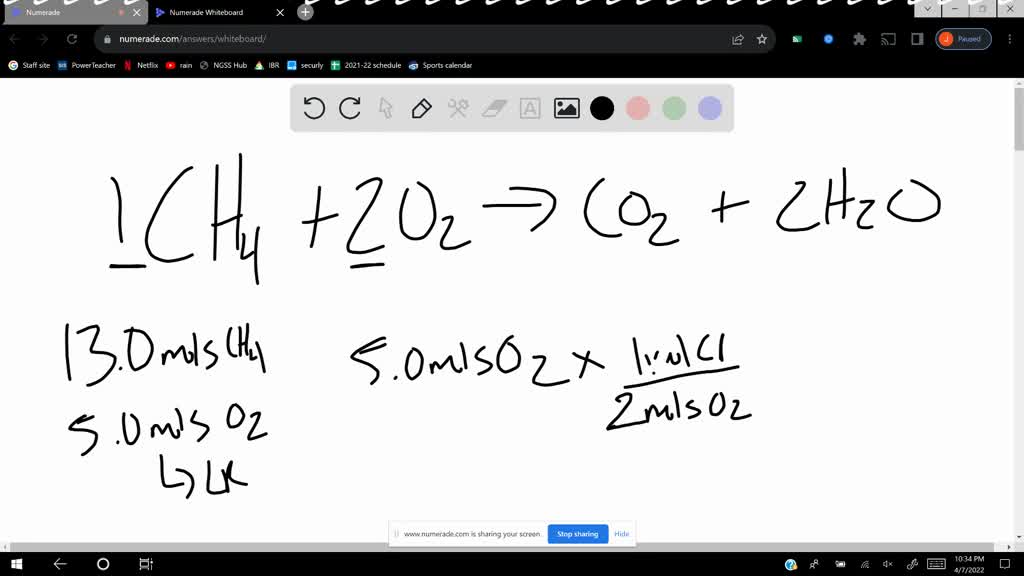 Numerade
Numerade Whiteboard
numerade.com/answers/whiteboard/
J Paused
Staff site PowerTeacher Netflix rain NGSS Hub IBR securly 2021-22 schedule Sports calendar
A
1CH4 + 2O2 → CO2 + 2H2O
13.0 mols CH4
5.0 mols O2 x 1 mol CH
2 mols O2
5.0 mols O2
↳ LR
www.numerade.com is sharing your screen. Stop sharing Hide
10:34 PM
4/7/2022